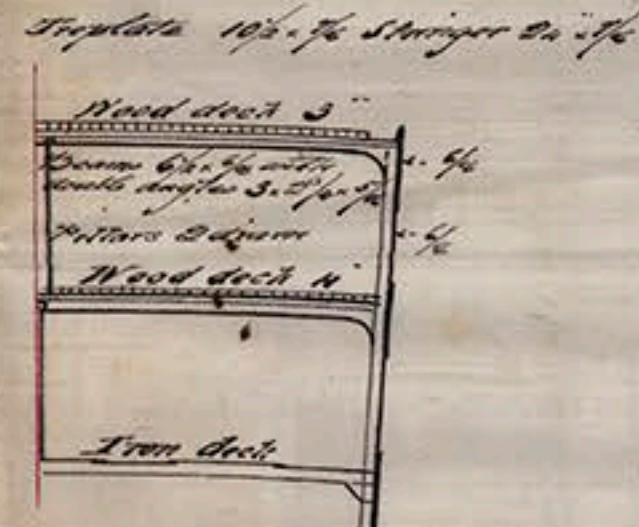 Tieplate 10½ × 7/16 Stringer 2
Wood deck 3"
Beams 6½ × 6/16 with
double angles 3 × 2½ × 5/16
× 6/16
Pillars 2 diam
× 6/16
Wood deck 4"
Iron deck